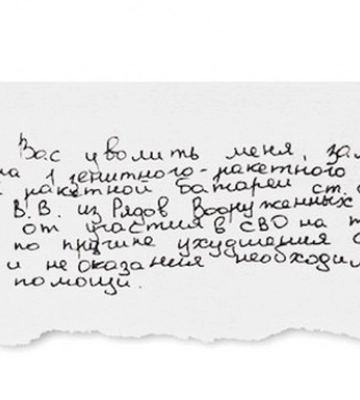 Вас уволить меня, зам
на 1 зенитного-ракетного
ракетной батареи ст.
В.В. из Рядов Вооруженных
от участия в СВО на т
по причине ухудшения с
и не оказания необходим
помощи.